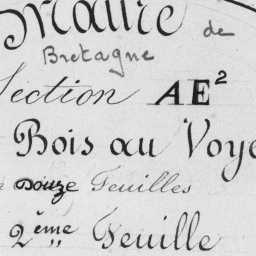 Maure de
Bretagne
Section AE²
Bois au Voye
Douze Feuilles
2ème Feuille